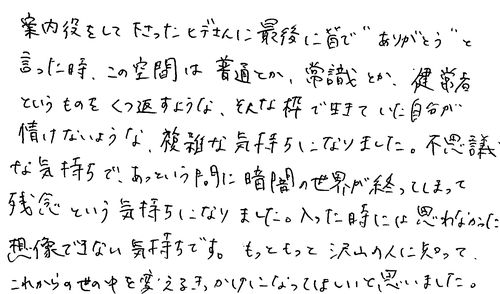 案内役をして下さったヒデさんに最後に皆で"ありがとう"と
言った時、この空間は普通とか、常識とか、健常者
というものをくつ返すような、そんな枠で生きていた自分が
情けないような、複雑な気持ちになりました。不思議
な気持ちで、あっという間に暗闇の世界が終ってしまって
残念という気持ちになりました。入った時には思わなかった
想像できない気持ちです。もっともっと沢山の人に知って、
これからの世の中を変えるきっかけになってほしいと思いました。